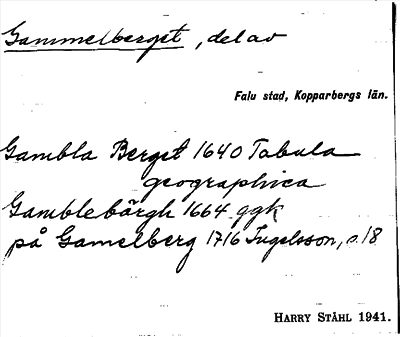 Gammelberget, del av
Falu stad, Kopparbergs län.
Gambla Berget 1640 Tabula
geographica
Gamblebärgh 1664 ggk
på Gamelberg 1716 Ingelsson, s. 18
HARRY STÅHL 1941.